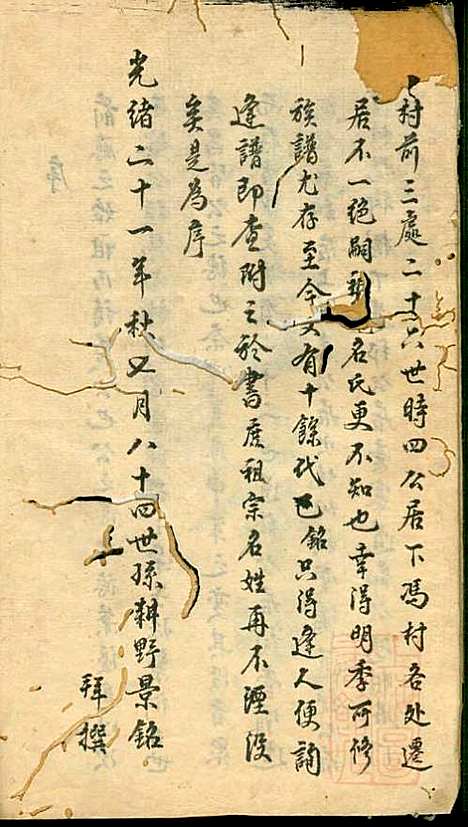 村前三處二十六世時四公居下馮村各处遷
居不一絕嗣名氏更不知也幸得明季可修
族譜尤存至今又有十餘代已銘只得逢人便誦
逢譜即查附之於書庶祖宗名姓再不湮没
矣是為序
光緒二十一年秋月八十四世孫耕野景銘
拜撰